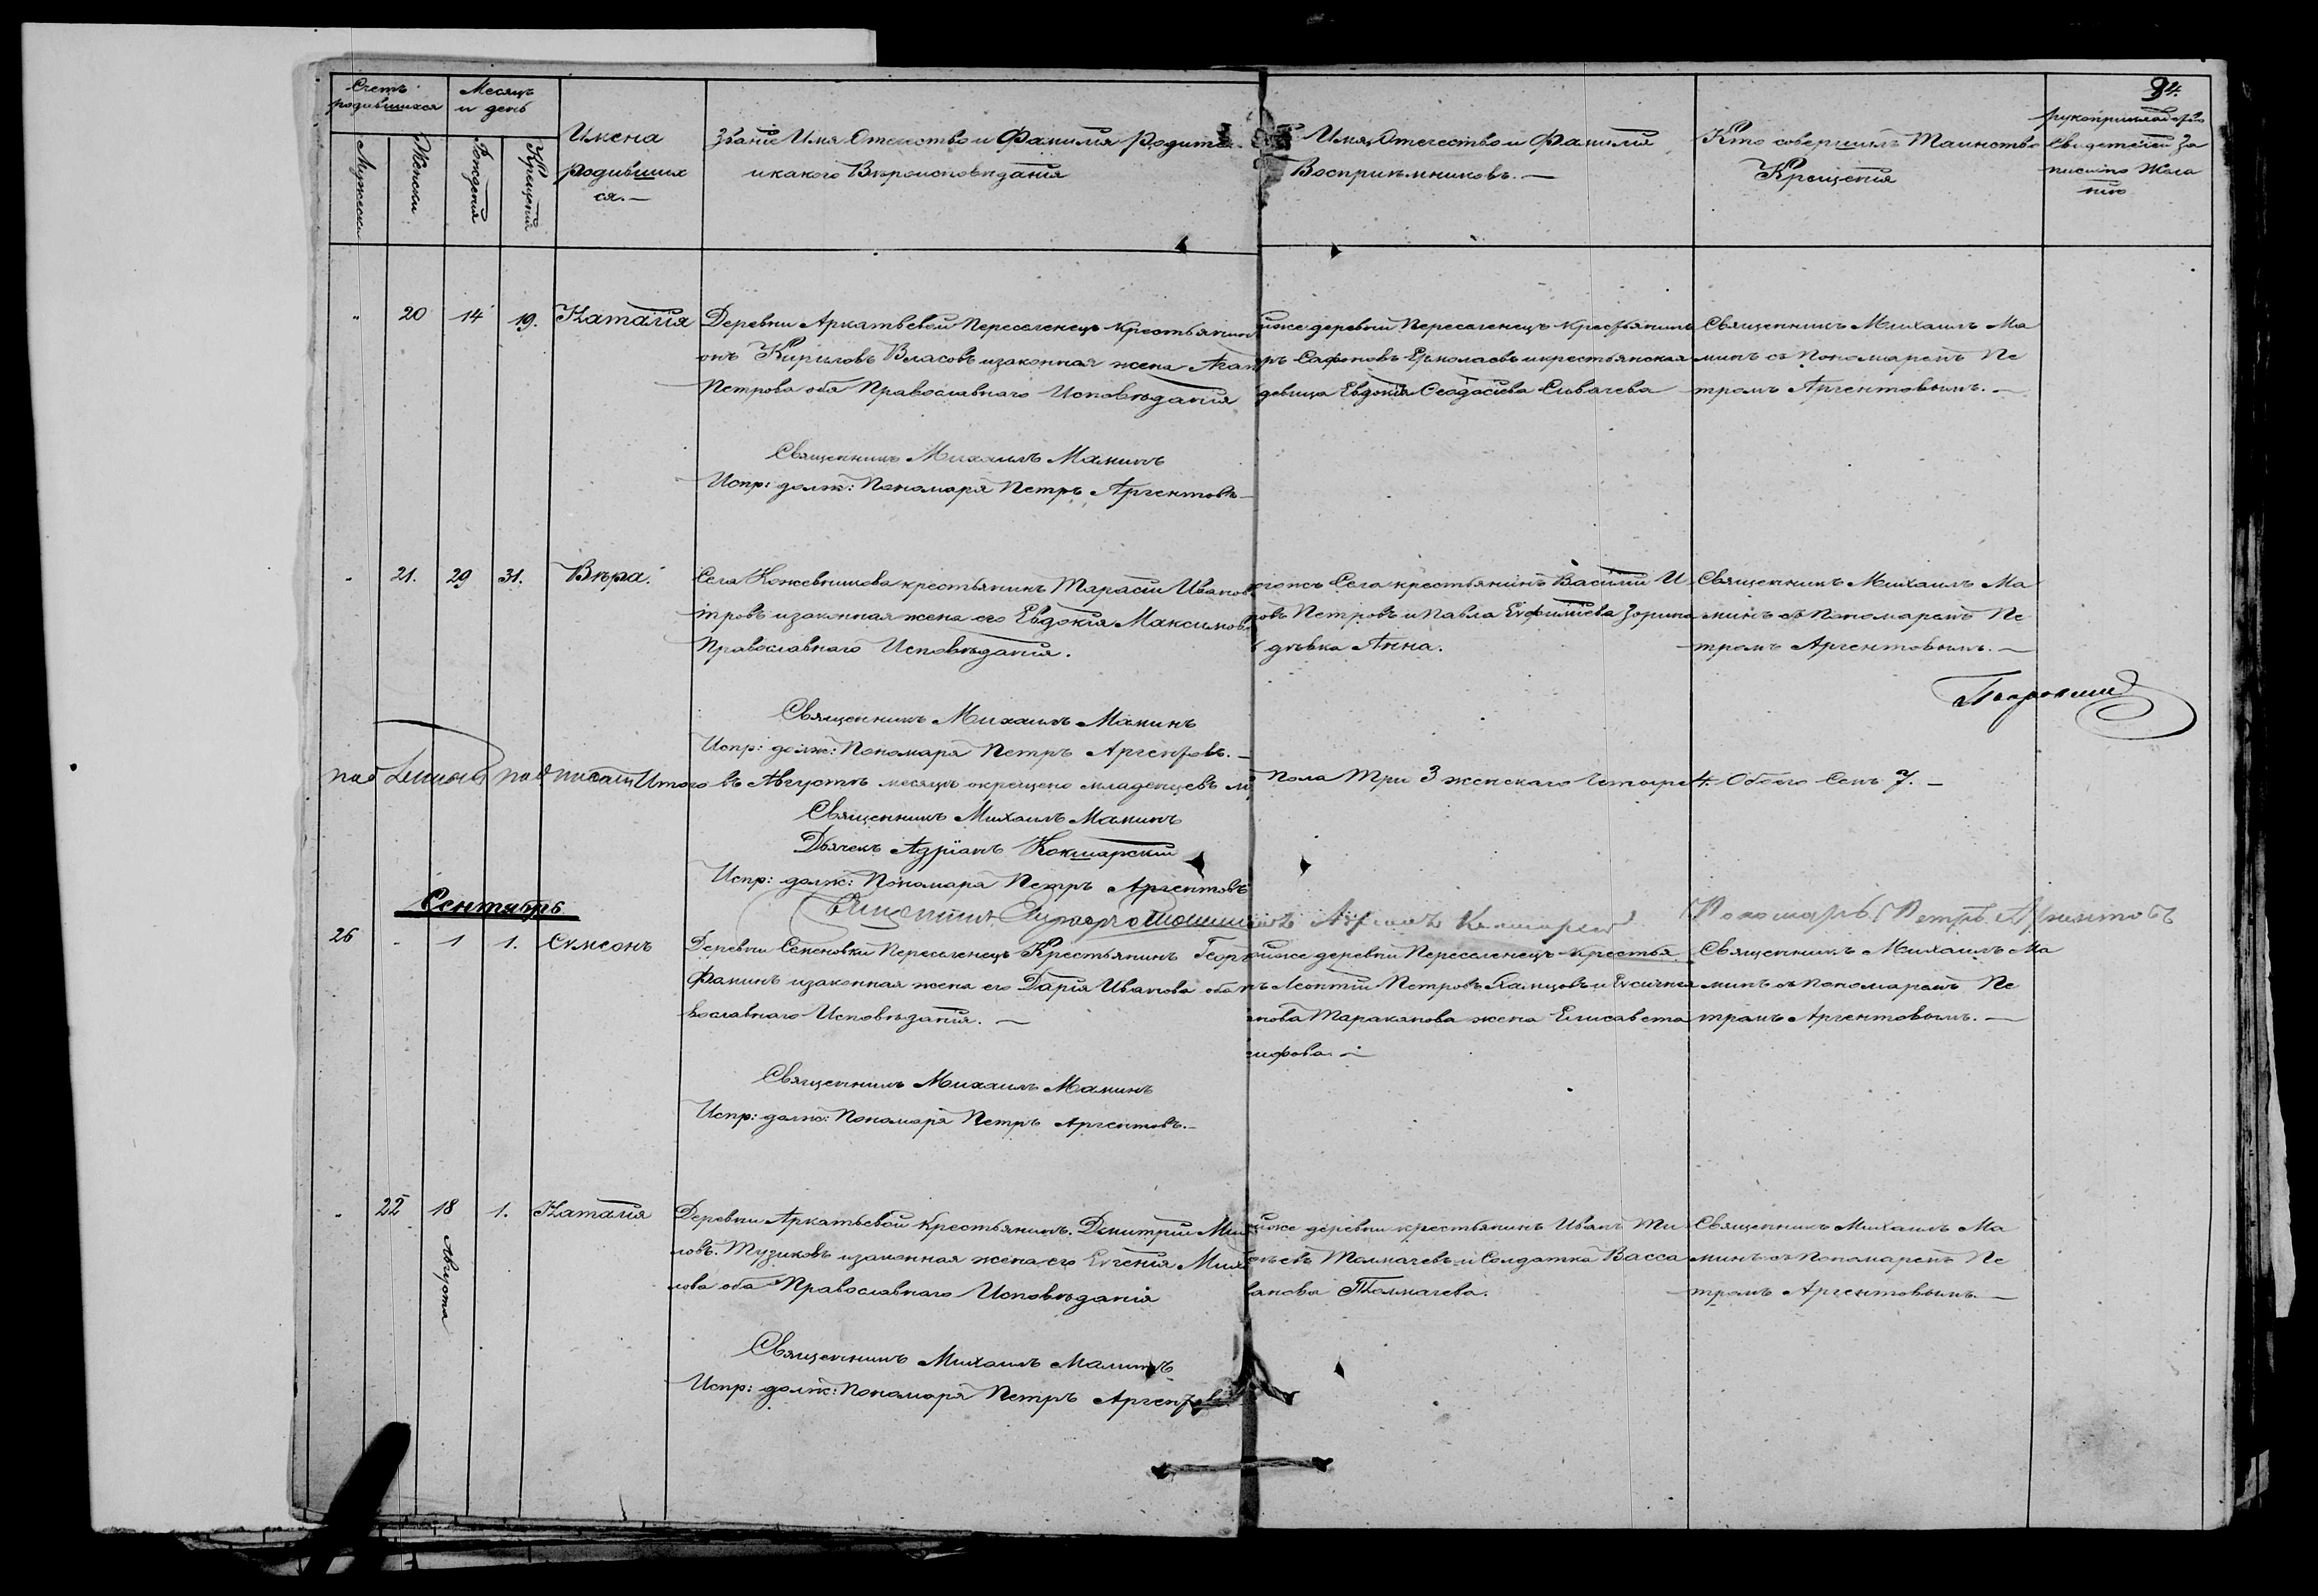 Счетъ родившихся
Месяцъ и день
Мужеска
Женска
Рождения
Крещения
Имена родившихся.—
Званіе Имя Отечество и Фамилия Родител
и какого Вѣроисповѣданія
Имя, Отечество и Фамилия
Восприемниковъ.—
Кто совершилъ Таинство
Крещения
рукоприкладство
Свидетелей за
писи по Жела
нию
" 20 14 19. Наталия
Деревни Аркатьевой Переселенецъ Крестьянин
онъ Кириловъ Власовъ и законная жена Агаф
Петрова оба Православнаго Исповѣданія
йже деревни Переселенецъ Крестьянинъ
ръ Сафоновъ Ермолаевъ и крестьянская
девица Евдокія Сеодосіева Сывачева
Священникъ Михаилъ Ма
минъ съ Пономаремъ Пе
тромъ Аргентовымъ.—
Священникъ Михаилъ Маминъ
Испр: долж: Пономаря Петръ Аргентовъ—
- 21. 29 31. Вѣра.
Села Кожевникова крестьянинъ Тарасій Иванов
тровъ и законная жена его Евдокія Максимов
Православнаго Исповѣданія.
огожъ Села крестьянинъ Василій И
новъ Петровъ и Павла Евфиміева Зорина
дѣвка Анна.
Священникъ Михаилъ Ма
минъ съ Пономаремъ Пе
тромъ Аргентовымъ.—
Священникъ Михаилъ Маминъ
Испр: долж: Пономаря Петръ Аргентовъ.—
Итого въ Августѣ месяцѣ окрещено младенцевъ м
пола Три 3 женскаго Четыре 4. Обоего Семъ 7.—
Священникъ Михаилъ Маминъ
Дьячекъ Адріанъ Кокшарскій
Испр: долж: Пономаря Петръ Аргентовъ
Пономарь Петръ Аргентовъ
Сентябрь
26 - 1 1. Симеонъ
Деревни Семеновки Переселенецъ Крестьянинъ Георг
Фаминъ и законная жена его Дарія Иванова оба
вославнаго Исповѣданія.—
йже деревни Переселенецъ Крестья
нъ Леонтій Петровъ и
нова Тараканова жена Елисавета
сифова.—
Священникъ Михаилъ Ма
минъ съ пономаремъ Пе
тромъ Аргентовымъ.—
Священникъ Михаилъ Маминъ
Испр: долж: Пономаря Петръ Аргентовъ.—
" 22 18 Августа 1. Наталія
Деревни Аркатьевой Крестьянинъ Дмитрій Мих
ловъ Тузиковъ и законная жена его Евгенія Миха
лова оба Православнаго Исповѣданія
йже деревни крестьянинъ Иванъ Ти
еевъ Толмачевъ и Солдатка Васса
ванова Толмачева.
Священникъ Михаилъ Ма
минъ съ Пономаремъ Пе
тромъ Аргентовымъ.—
Священникъ Михаилъ Маминъ
Испр: долж: Пономаря Петръ Аргентовъ